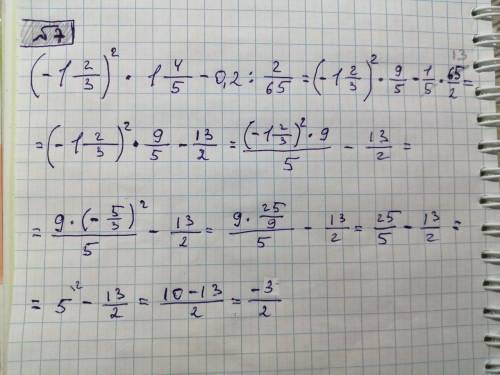 №7
(-1 2/3)² · 1 4/5 - 0,2 : 2/65 = (-1 2/3)² · 9/5 - 1/5 · 65/2 = 13
= (-1 2/3)² · 9/5 - 13/2 = (-1 2/3)² · 9/5 - 13/2 =
= 9 · (-5/3)²/5 - 13/2 = 9 · 25/9/5 - 13/2 = 25/5 - 13/2 =
= 5² - 13/2 = 10-13/2 = -3/2